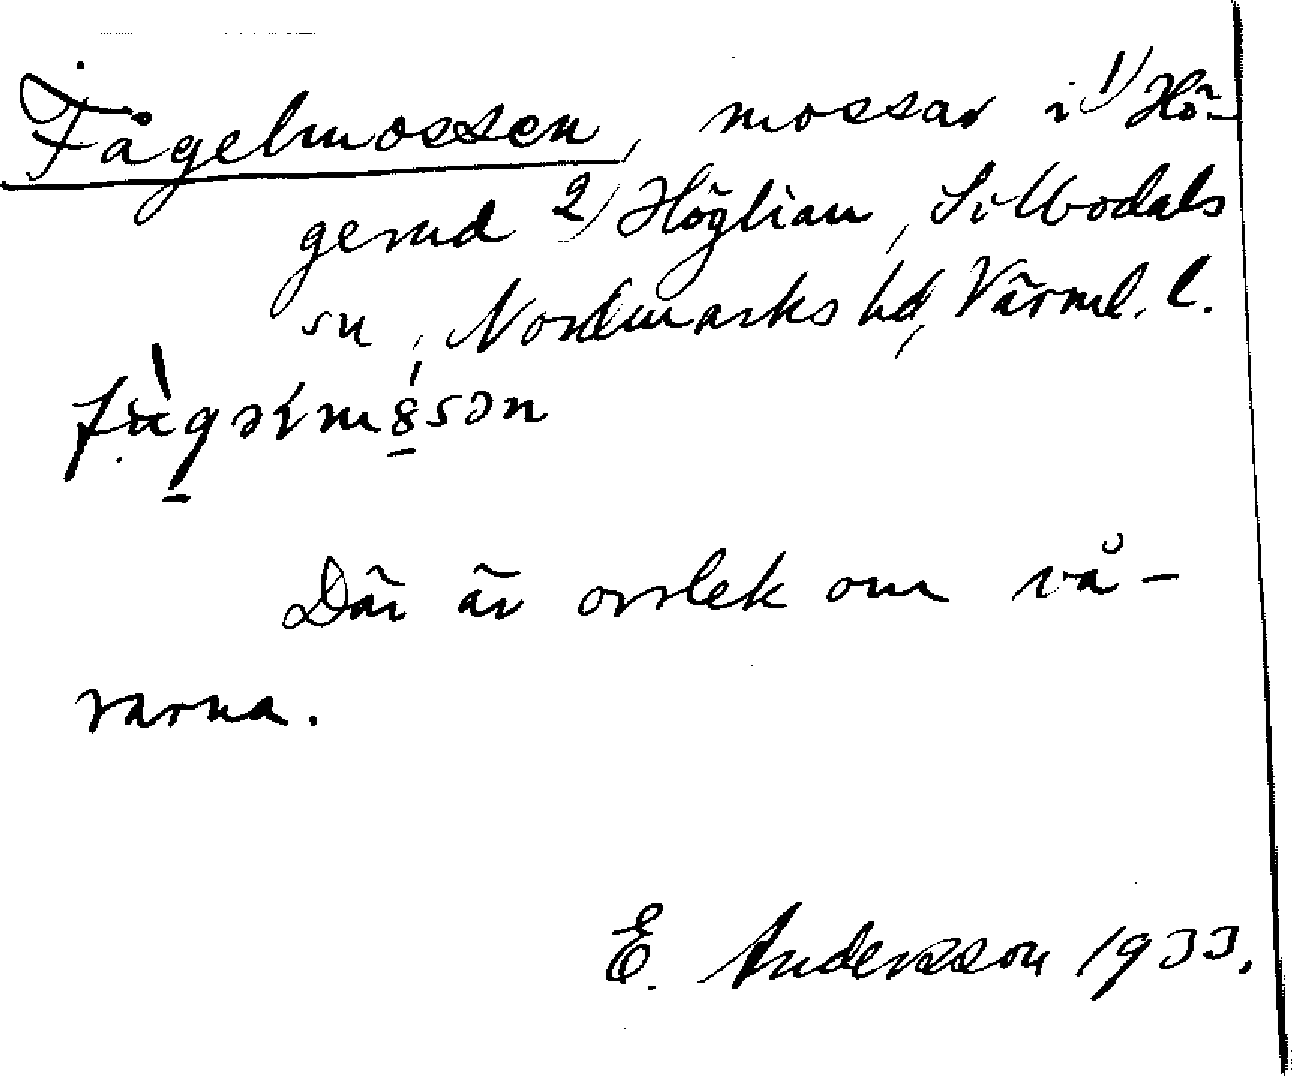 Fågelmossen, mossar i 1) Hö-
gerud 2) Höglian, Silbodals
sn, Nordmarks hd, Värml. l.
Där är orrlek om vå-
rarna.
E. Andersson 1933.